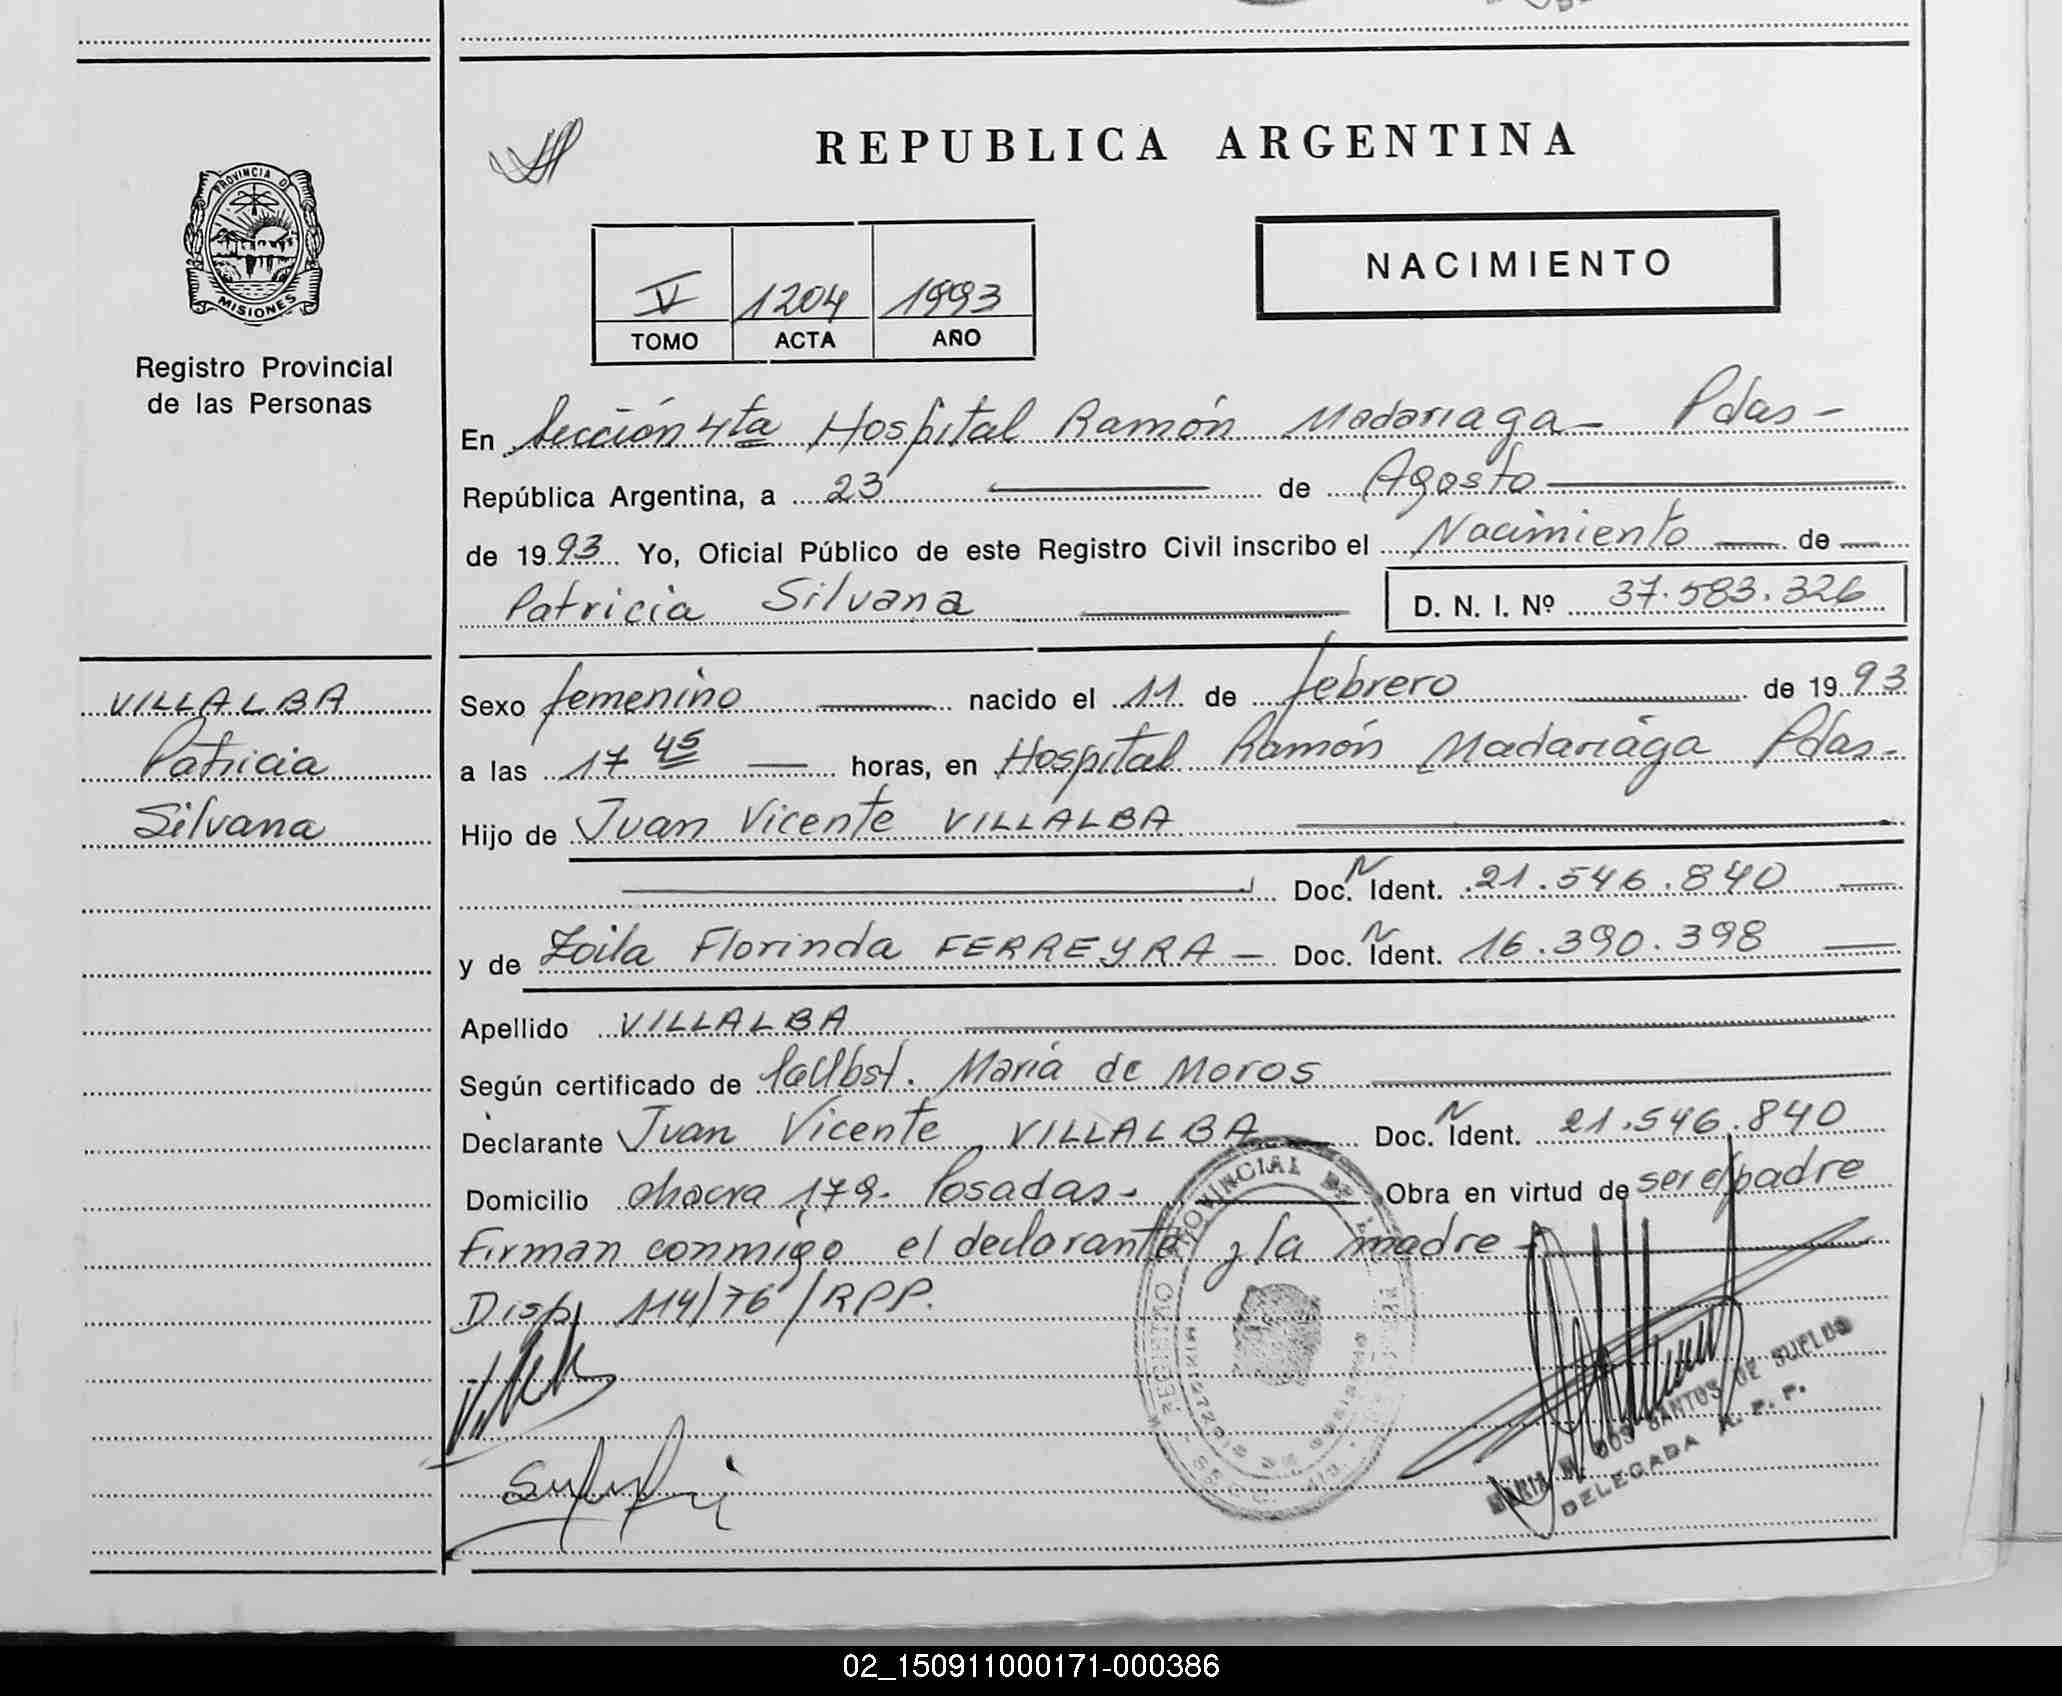 REPUBLICA ARGENTINA
PROVINCIA DE
MISIONES
Registro Provincial
de las Personas
NACIMIENTO
V 1204 1993
TOMO ACTA AÑO
En Sección 4ta Hospital Ramón Madariaga - Pdas -
República Argentina, a 23 de Agosto
de 1993 Yo, Oficial Público de este Registro Civil inscribo el Nacimiento de
Patricia Silvana D. N. I. Nº 37.583.326
VILLALBA
Patricia
Silvana
Sexo femenino nacido el 11 de febrero de 1993
a las 17 45 horas, en Hospital Ramón Madariaga Pdas-
Hijo de Juan Vicente VILLALBA
Doc. N Ident. 21.546.840
y de Zoila Florinda FERREYRA - Doc. N Ident. 16.390.398
Apellido VILLALBA
Según certificado de María de Moros
Declarante Juan Vicente VILLALBA Doc. N Ident. 21.546.840
Domicilio chacra 179- Posadas- Obra en virtud de ser el padre
Firman conmigo el declarante y la madre -
Disp. 114/76/RPP.
REGISTRO PROVINCIAL DE
MINISTERIO DE GOBIERNO
MARIA DOS SANTOS DE SUELDO
DELEGADA R. P. P.
02_150911000171-000386